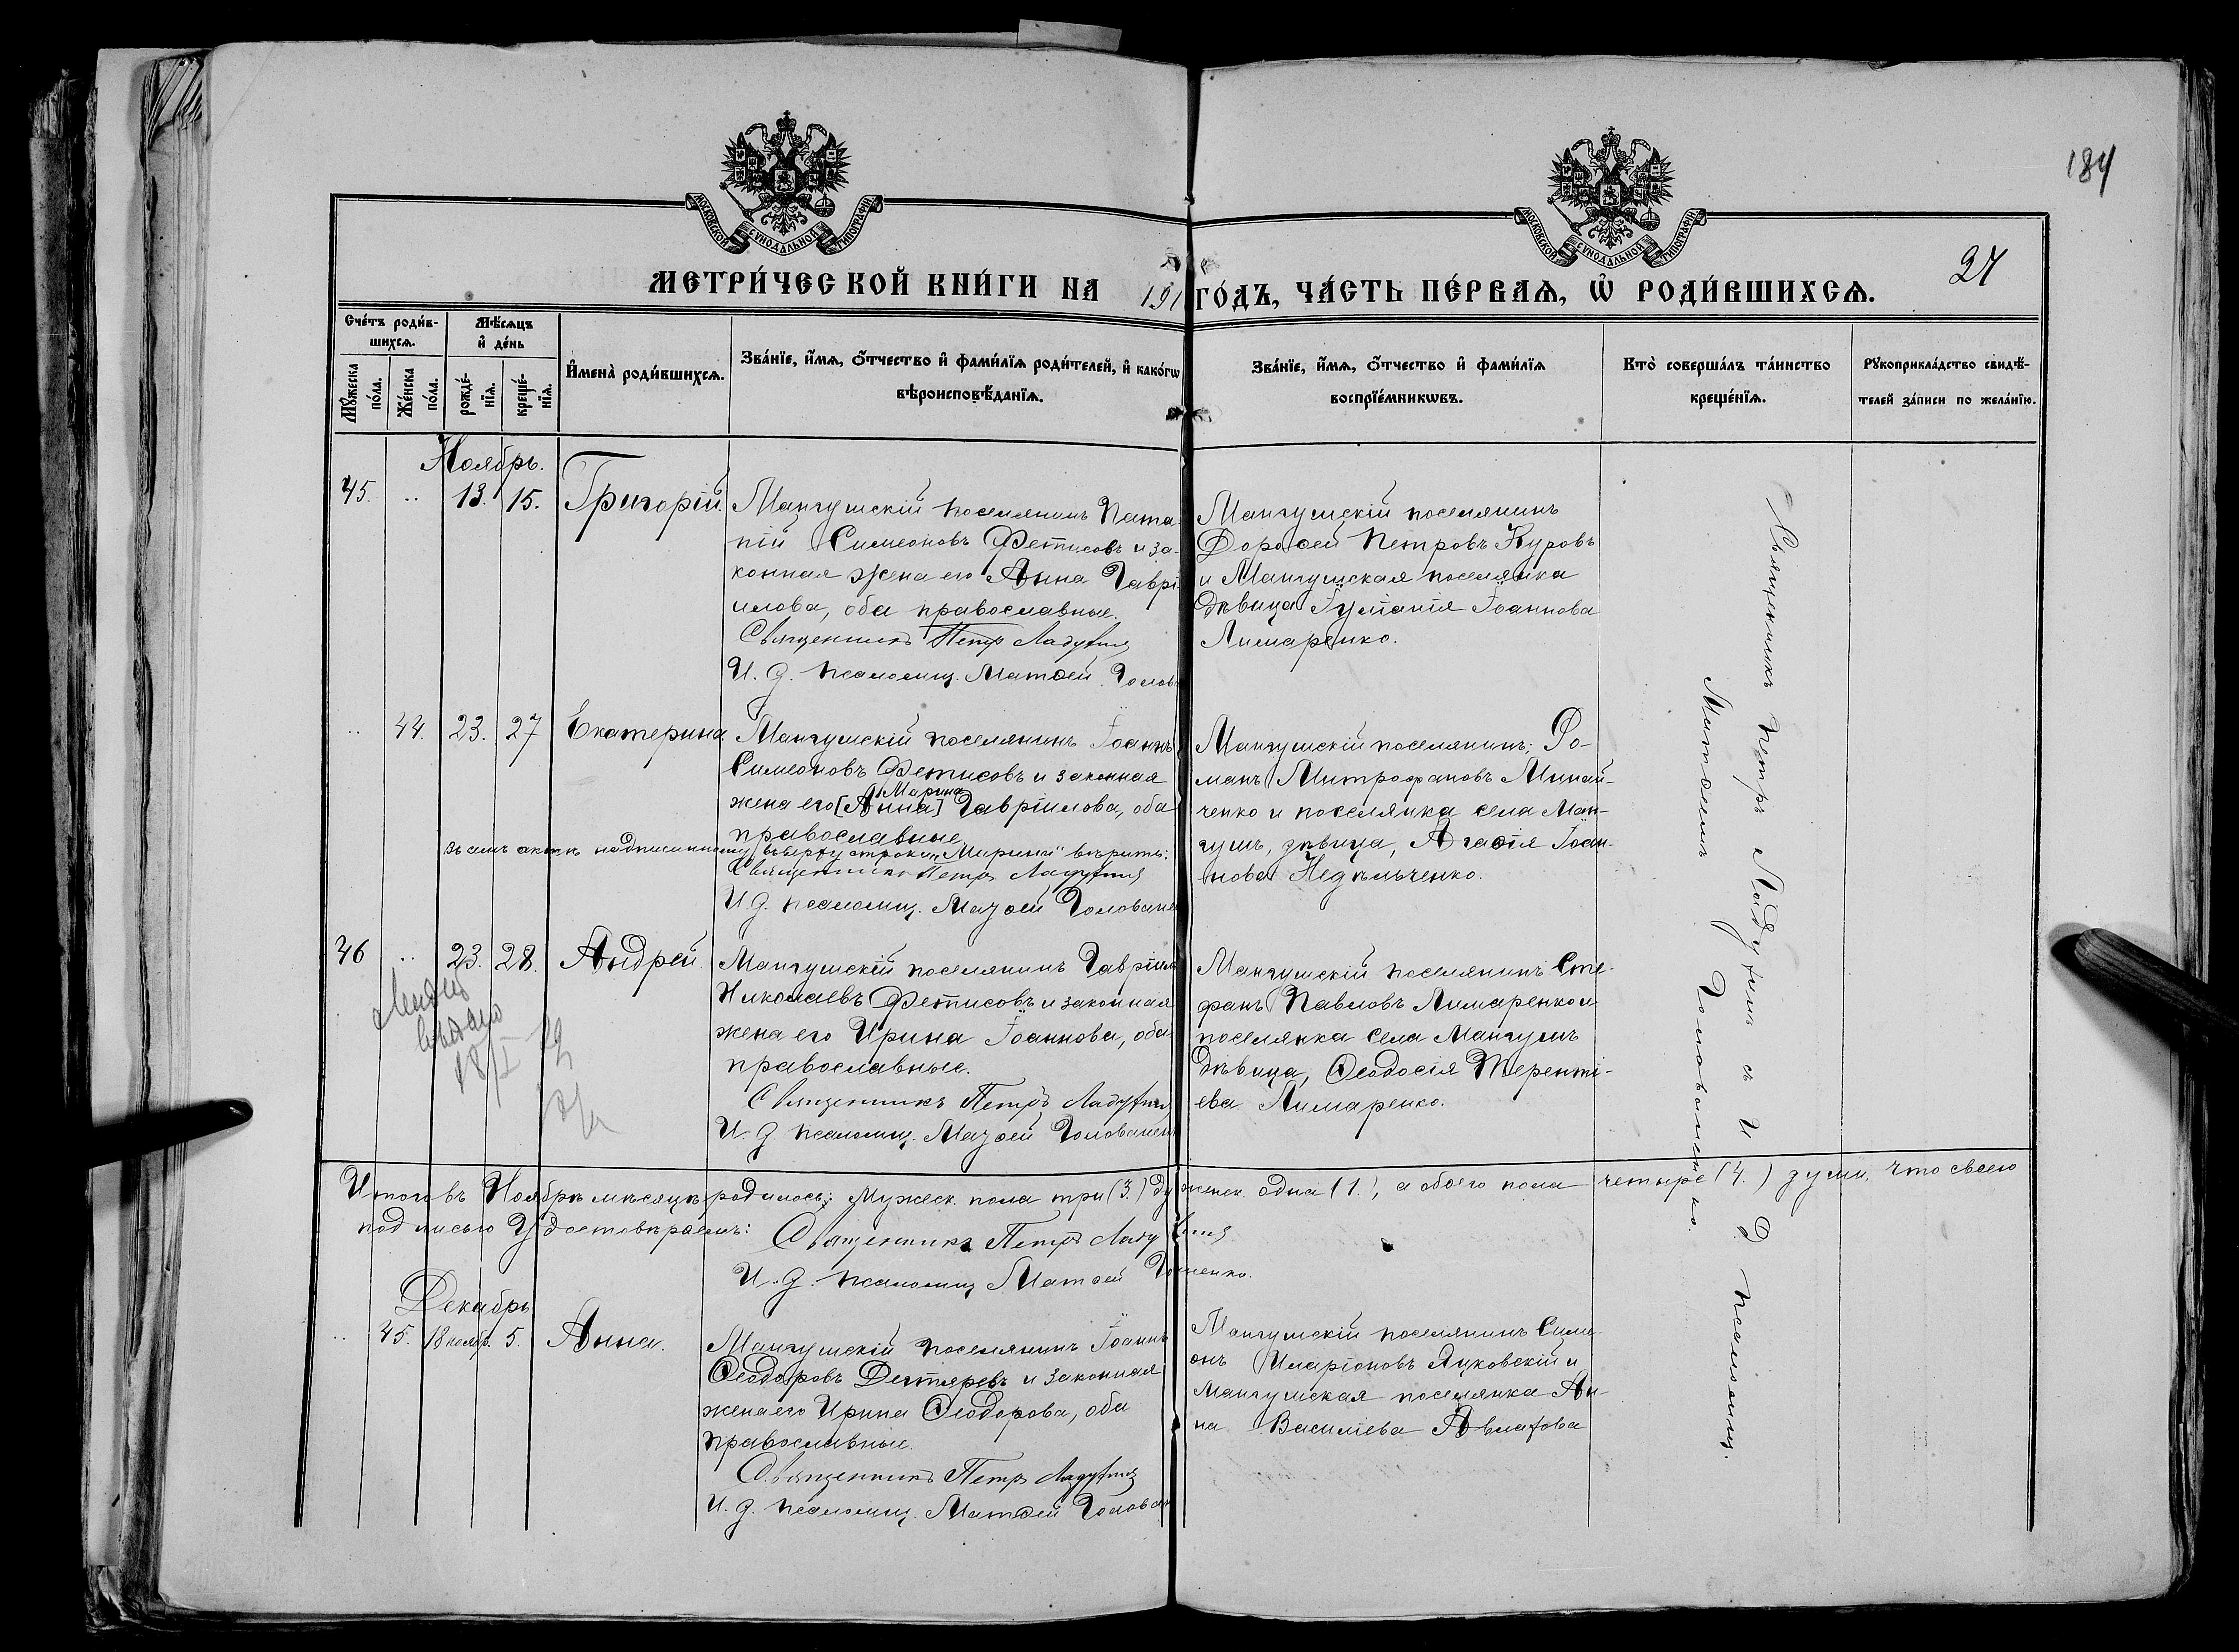 184
МОСКОВСКОЙ СѴНОДАЛЬНОЙ ТИПОГРАФІИ
МОСКОВСКОЙ СѴНОДАЛЬНОЙ ТИПОГРАФІИ
27
МЕТРИ́ЧЕСКОЙ КНИ́ГИ НА 191 ГО́ДЪ, ЧА́СТЬ ПЕ́РВАѦ, Ѡ҆ РОДИ́ВШИХСѦ.
Сче́тъ роди́в-
шихсѧ.
Мѣ́сѧцъ
и҆ де́нь
Мꙋ́жеска
по́ла.
Же́нска
по́ла.
рожде́-
нїѧ.
креще́-
нїѧ.
И҆мена̀ роди́вшихсѧ.
Зва́нїе, и҆́мѧ, ѻ҆́тчество и҆ фами́лїѧ роди́телей, и҆ како́гѡ
вѣроисповѣ́данїѧ.
Зва́нїе, и҆́мѧ, ѻ҆́тчество и҆ фами́лїѧ
воспрїе́мникѡвъ.
Кто̀ соверша́лъ та́инство
креще́нїѧ.
Рꙋкоприкла́дство свидѣ́-
телей за́писи по жела́нїю.
Ноябрь.
45. .. 13. 15. Григорій.
Мангушскій поселянинъ Пата-
пій Симеоновъ Фетисовъ и за-
конная жена его Анна Гаврі-
илова, оба православные.
Священникъ Петръ
И. д. псаломщ. Матѳей Голов
Мангушскій поселянинъ
Дороѳей Петровъ Куровъ
и Мангушская поселянка
дѣвица Іуліанія Іоаннова
Лимаренко.
.. 44. 23. 27 Екатерина.
Мангушскій поселянинъ Іоаннъ
Симеоновъ Фетисовъ и законная
Марина
жена его [Анна] Гавріилова, оба
православные.
Въ семъ актѣ надписанному вверху строки „Марина" вѣрить:
Священникъ Петръ
И. д. псаломщ. Матѳей Голован
Мангушскій поселянинъ, Ро-
манъ Митрофановъ Минай-
ченко и поселянка села Ман-
гушъ, дѣвица, Агаѳія Іоан-
нова Недѣльченко.
46 .. 23. 28. Андрей.
Мангушскій поселянинъ Гавріилъ
Николаевъ Фетисовъ и законная
жена его Ирина Іоаннова, оба
православные.
Священникъ Петръ
И. д. псаломщ. Матѳей Голованен
Мангушскій поселянинъ Сте-
фанъ Павловъ Лимаренко и
поселянка села Мангушъ
дѣвица, Ѳеодосія Теренті-
ева Лимаренко.
18/I
Священникъ Петръ съ И. д. псаломщ.
Матѳеемъ Голованенко.
Итого въ Ноябрѣ мѣсяцѣ родилось: мужеск. пола три (3.) ду женск. одна (1.), а обоего пола четыре (4.) души, что своею
подписью удостовѣряемъ:
Священникъ Петръ
И. д. псаломщ Матѳей Го ненко.
Декабрь
.. 45. 18 ноябр. 5. Анна.
Мангушскій поселянинъ Іоаннъ
Ѳеодоровъ Дегтяревъ и законная
жена его Ирина Ѳеодорова, оба
православные.
Священникъ Петръ
И. д. псаломщ. Матѳей Голован
Мангушскій поселянинъ Симе-
онъ Иларіоновъ Яцковскій и
Мангушская поселянка Ан-
на Василіева